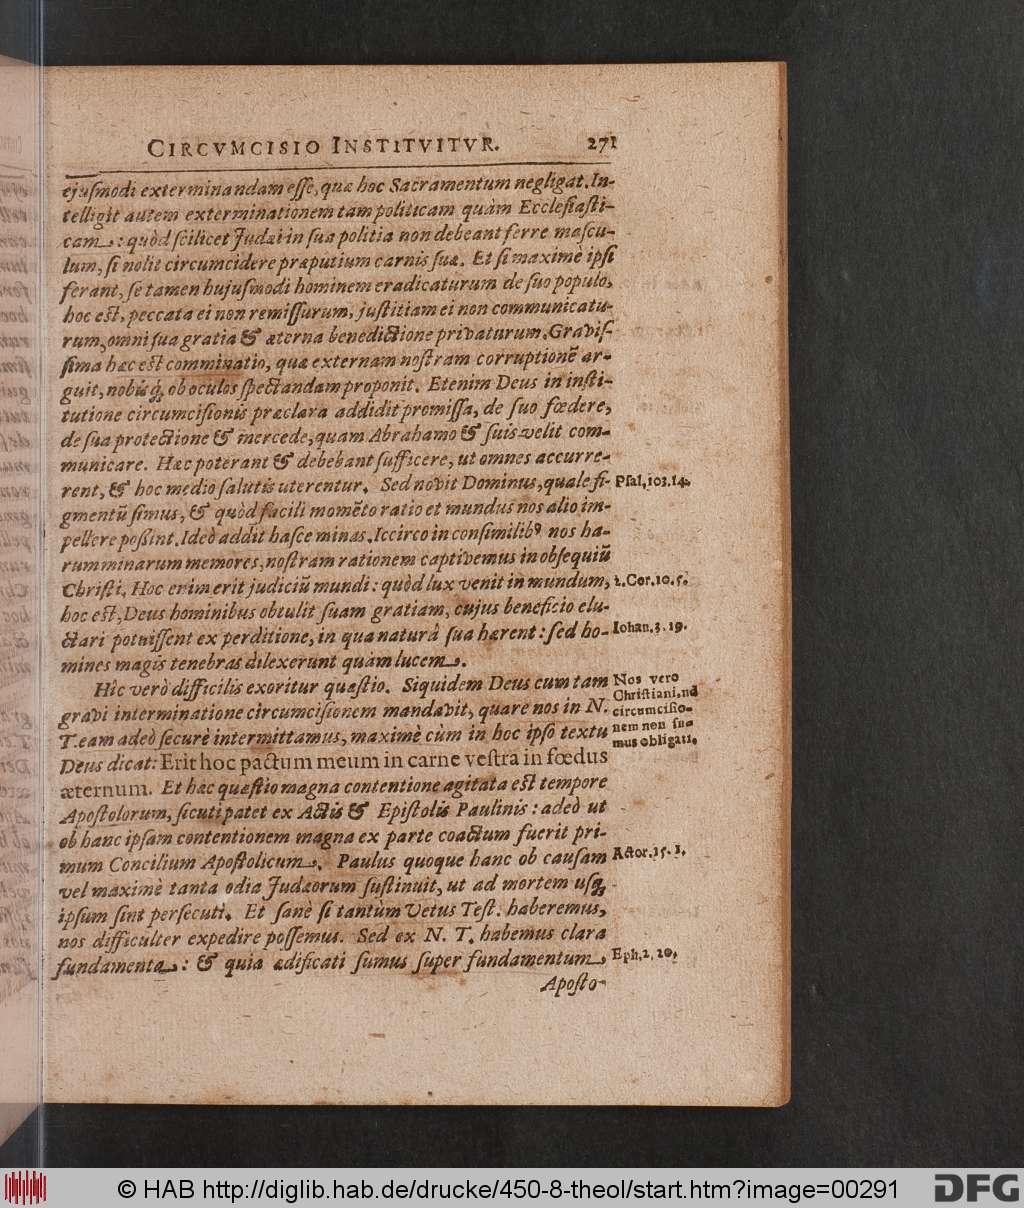 CIRCVMCISIO INSTITVITVR. 271
ejuſmodi exterminandam eſſe, quæ hoc Sacramentum negligat. In-
telligit autem exterminationem tam politicam quàm Eccleſiaſti-
cam: quòd ſcilicet Judæi in ſua politia non debeant ferre maſcu-
lum, ſi nolit circumcidere præputium carnis ſuæ. Et ſi maximè ipſi
ferant, ſe tamen hujuſmodi hominem eradicaturum de ſuo populo,
hoc eſt, peccata ei non remiſſurum, juſtitiam ei non communicatu-
rum, omni ſua gratia & æterna benedictione privaturum. Graviſ-
ſima hæc eſt comminatio, quæ externam noſtram corruptionẽ ar-
guit, nobisq́, ob oculos ſpectandam proponit. Etenim Deus in inſti-
tutione circumciſionis præclara addidit promiſſa, de ſuo fœdere,
de ſua protectione & mercede, quam Abrahamo & ſuis velit com-
municare. Hæc poterant & debebant ſufficere, ut omnes accurre-
rent, & hoc medio ſalutis uterentur. Sed novit Dominus, quale fi-
gmentũ ſimus, & quòd facili momẽto ratio et mundus nos alio im-
pellere poßint. Ideò addit haſce minas. Iccirco in conſimilibꝰ nos ha-
rum minarum memores, noſtram rationem captivemus in obſequiũ
Chriſti, Hoc enim erit judiciũ mundi: quòd lux venit in mundum,
hoc eſt, Deus hominibus obtulit ſuam gratiam, cujus beneficio elu-
ctari potuiſſent ex perditione, in qua naturâ ſua hærent: ſed ho-
mines magis tenebras dilexerunt quàm lucem.
Hîc verò difficilis exoritur quæſtio. Siquidem Deus cum tam
gravi interminatione circumciſionem mandavit, quare nos in N.
T. eam adeò ſecurè intermittamus, maximè cùm in hoc ipſo textu
Deus dicat: Erit hoc pactum meum in carne veſtra in fœdus
æternum. Et hæc quæſtio magna contentione agitata eſt tempore
Apoſtolorum, ſicuti patet ex Actis & Epiſtolis Paulinis: adeò ut
ob hanc ipſam contentionem magna ex parte coactum fuerit pri-
mum Concilium Apoſtolicum. Paulus quoque hanc ob cauſam
vel maximè tanta odia Judæorum ſuſtinuit, ut ad mortem uſq́,
ipſum ſint perſecuti. Et ſanè ſi tantùm Vetus Teſt. haberemus,
nos difficulter expedire poſſemus. Sed ex N. T. habemus clara
fundamenta: & quia ædificati ſumus ſuper fundamentum,
Apoſto-
Pſal. 103.14.
2. Cor. 10. 5.
Iohan. 3. 19.
Nos vero
Chriſtiani, ad
circumciſio-
nem non ſu-
mus obligati.
Actor. 15. 1.
Eph. 2, 20,
© HAB http://diglib.hab.de/drucke/450-8-theol/start.htm?image=00291
DFG